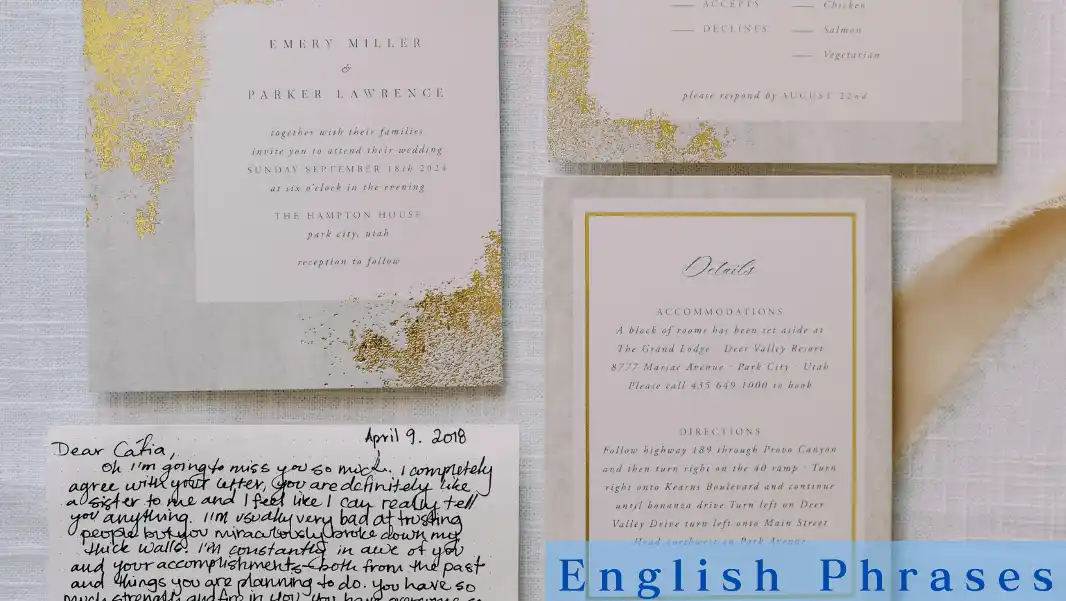 EMERY MILLER
&
PARKER LAWRENCE
together with their families
invite you to attend their wedding
SUNDAY SEPTEMBER 18th 2024
at six o'clock in the evening
THE HAMPTON HOUSE
park city, utah
reception to follow
ACCEPTS
DECLINES
Chicken
Salmon
Vegetarian
please respond by AUGUST 22nd
Details
ACCOMMODATIONS
A block of rooms has been set aside at
The Grand Lodge - Deer Valley Resort
8777 Marsac Avenue - Park City - Utah
Please call 435 649 1000 to book
DIRECTIONS
Follow highway 189 through Provo Canyon
and then turn right on the 40 ramp - Turn
right onto Kearns Boulevard and continue
until bonanza drive Turn left on Deer
Valley Drive turn left onto Main Street
Head northwest on Park Avenue
April 9. 2018
Dear Cátia,
Oh I'm going to miss you so much. I completely
agree with your letter, you are definitely like
a sister to me and I feel like I can really tell
you anything. I'm usually very bad at trusting
people but you miraculously broke down my
thick walls. I'm constantly in awe of you
and your accomplishments - both from the past
and things you are planning to do. You have so
much strength and fire in you. You have overcome so
English Phrases